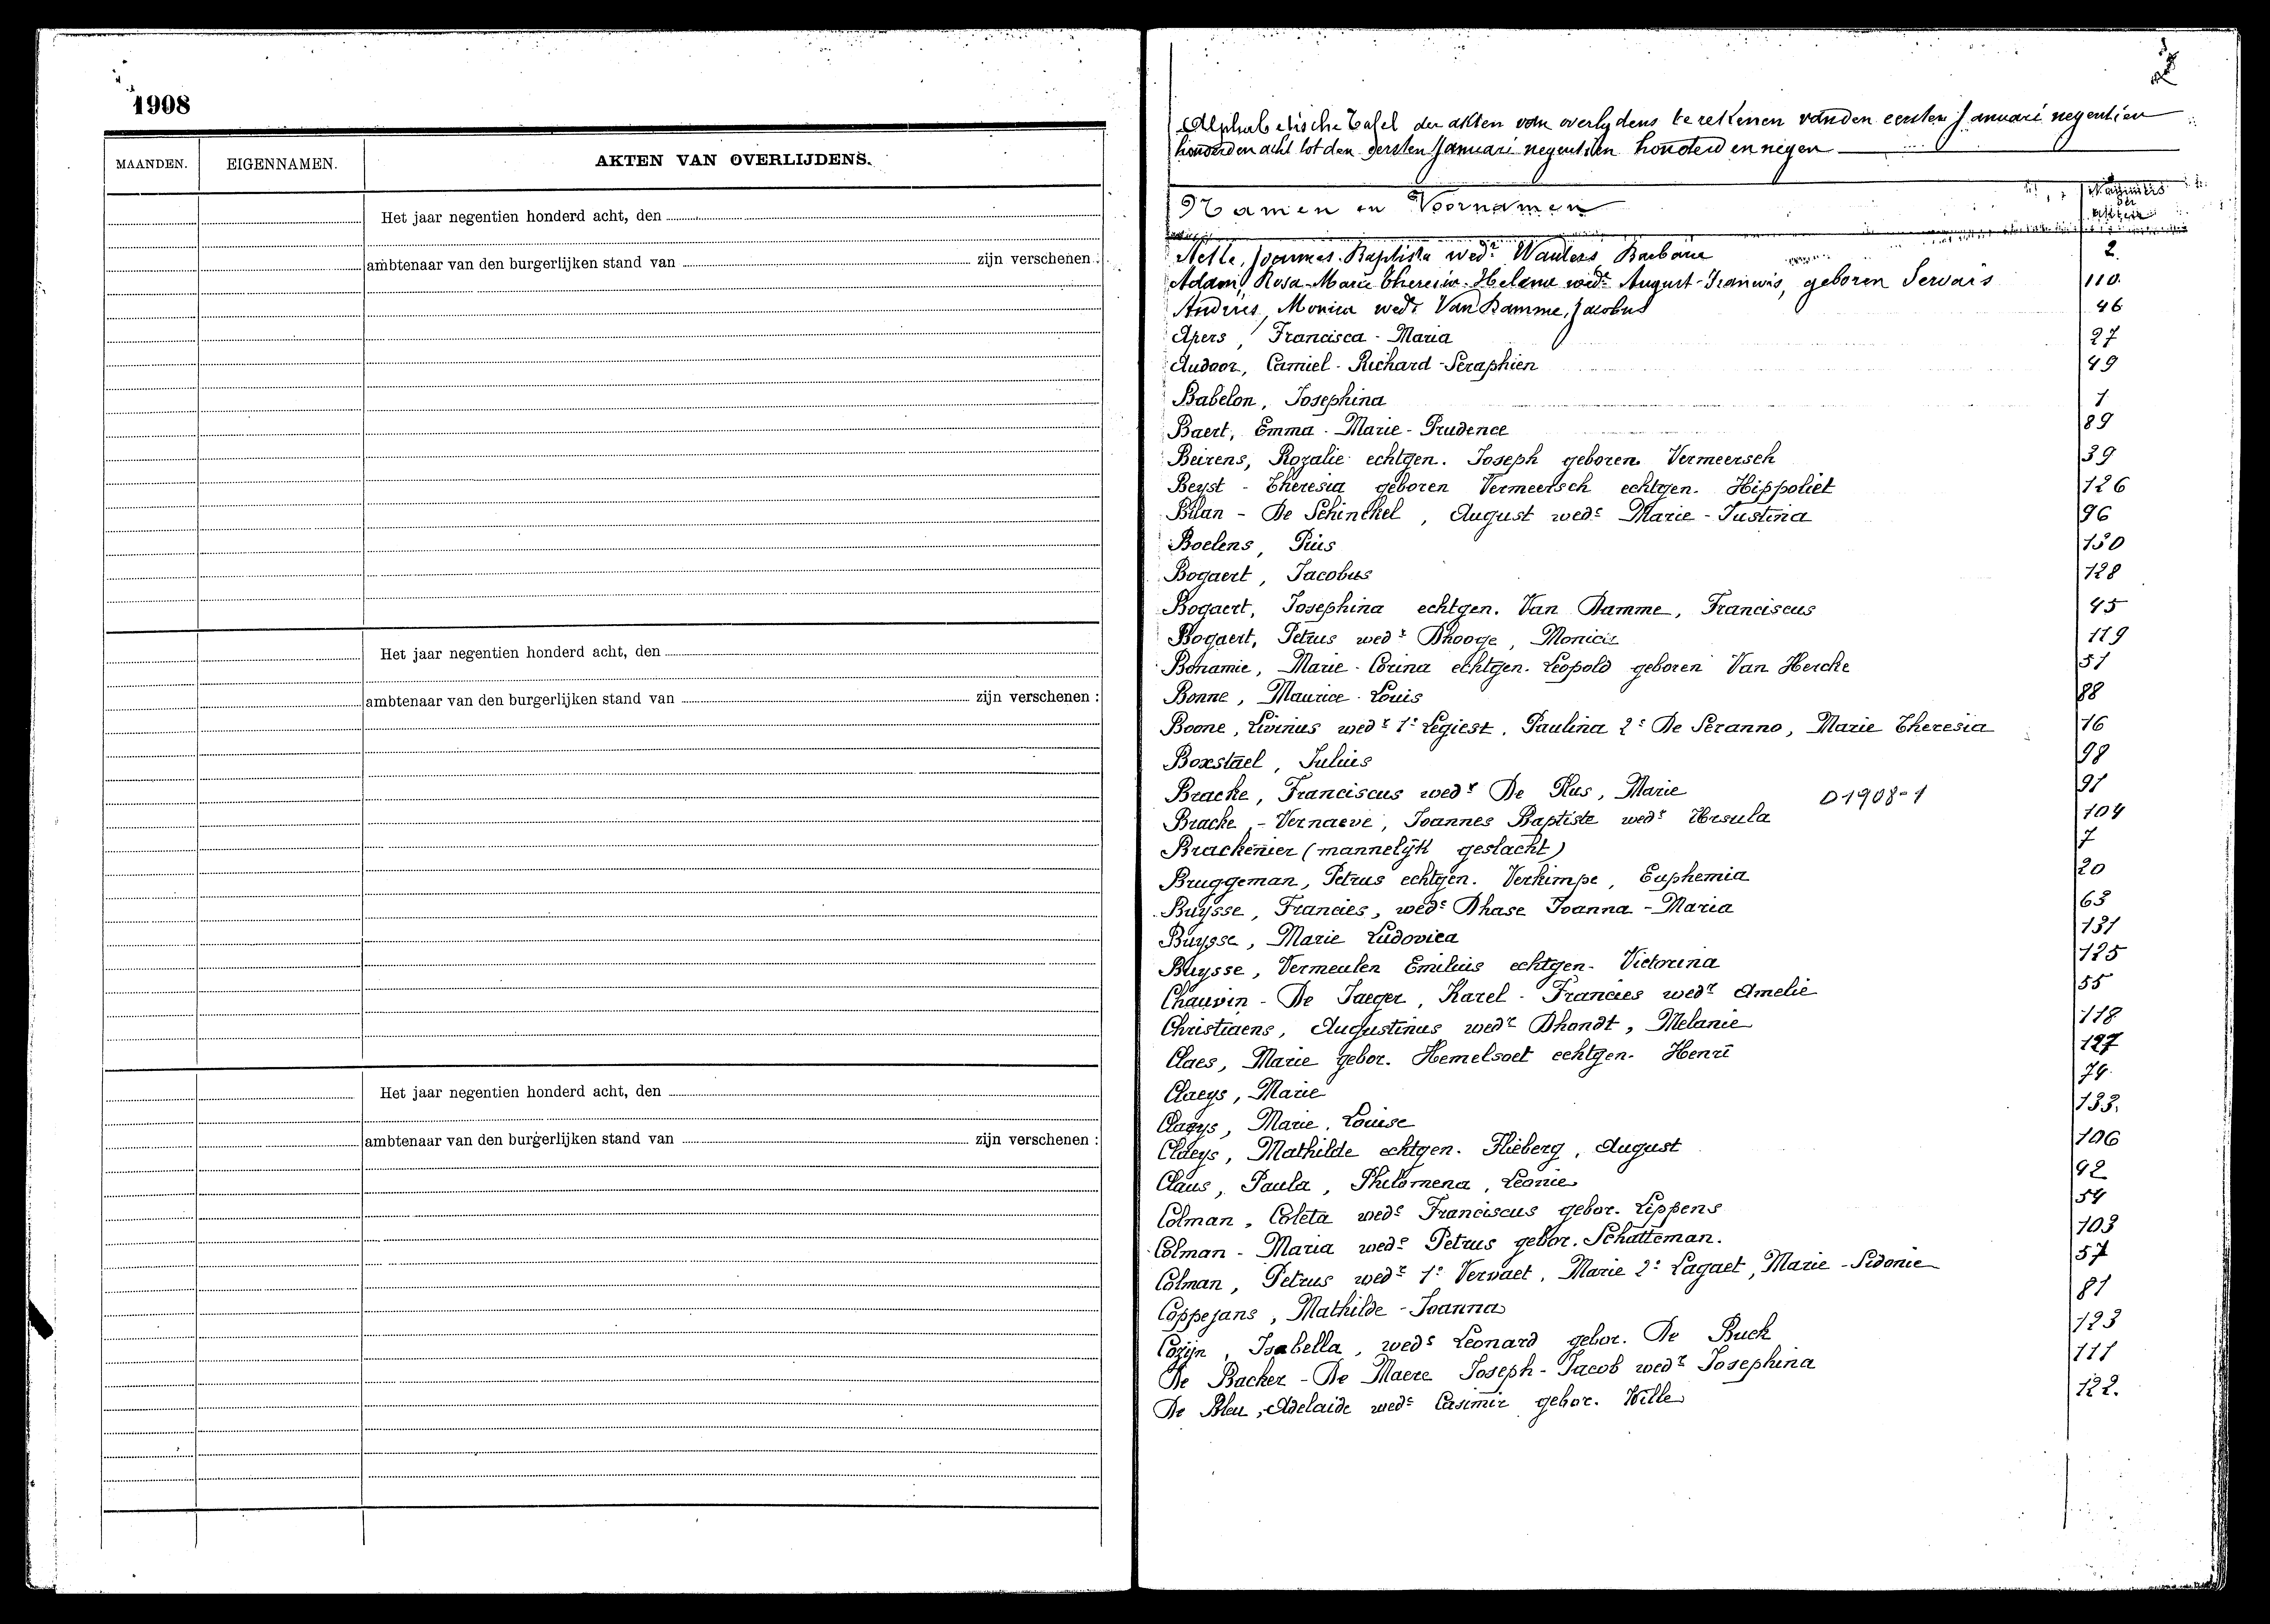 1908
MAANDEN. EIGENNAMEN. AKTEN VAN OVERLIJDENS.
Het jaar negentien honderd acht, den
ambtenaar van den burgerlijken stand van zijn verschenen :
Het jaar negentien honderd acht, den
ambtenaar van den burgerlijken stand van zijn verschenen :
Het jaar negentien honderd acht, den
ambtenaar van den burgerlijken stand van zijn verschenen :
Alphabetische Tafel der akten van overlydens te rekenen van den eersten Januari negentien
honderd en acht tot den eersten Januari negentien honderd en negen
Namen en Voornamen Nummers der akten
Aelle, Joannes Baptista wedr Wauters Barbara 2
Adam, Rosa-Marie Theresia-Helena wede August-Francois, geboren Servais 110.
Andries, Monica wede Van Damme, Jacobus 46
Apers, Francisca - Maria 27
Audoor, Camiel - Richard - Seraphien 49
Babelon, Josephina 1
Baert, Emma - Marie - Prudence 89
Beirens, Rozalie echtgen. Joseph geboren Vermeersch 39
Beyst - Theresia geboren Vermeersch echtgen. Hippoliet 126
Bilan - De Schinckel, August wedr Marie - Justina 96
Boelens, Pius 130
Bogaert, Jacobus 128
Bogaert, Josephina echtgen. Van Damme, Franciscus 45
Bogaert, Petrus wedr Dhooge, Monica 119
Bonamie, Marie - Corina echtgen. Leopold geboren Van Hercke 51
Bonne, Maurice - Louis 88
Boone, Livinus wedr 1º Legiest, Paulina 2º De Seranno, Marie Theresia 16
Boxstael, Julius 98
Bracke, Franciscus wedr De Plus, Marie 91
D1908-1
Bracke, - Vernaeve, Joannes Baptiste wedr Ursula 104
Brackenier (mannelijk geslacht) 7
Bruggeman, Petrus echtgen. Verkimpe, Euphemia 20
Buysse, Francies, wedr Dhase Joanna - Maria 63
Buysse, Marie Ludovica 131
Buysse, Vermeulen Emilius echtgen. Victorina 125
Chauvin - De Jaeger, Karel - Francies wedr Amelie 55
Christiaens, Augustinus wedr Dhondt, Melanie 118
Claes, Marie gebor. Hemelsoet echtgen. Henri 127
Claeys, Marie 74
Claeys, Marie, Louise 133.
Claeys, Mathilde echtgen. Flieberg, August 106
Claus, Paula, Philomena, Leonie 92
Colman, Coleta wede Franciscus gebor. Lippens 54
Colman - Maria wede Petrus gebor. Schatteman. 103
Colman, Petrus wedr 1º Vervaet, Marie 2º Lagaet, Marie - Sidonie 57
Coppejans, Mathilde - Joanna 81
Cozijn, Isabella, wede Leonard gebor. De Buck 123
De Backer - De Maere Joseph - Jacob wedr Josephina 111
De Bleu, Adelaide wede Casimir gebor. Wille 122.